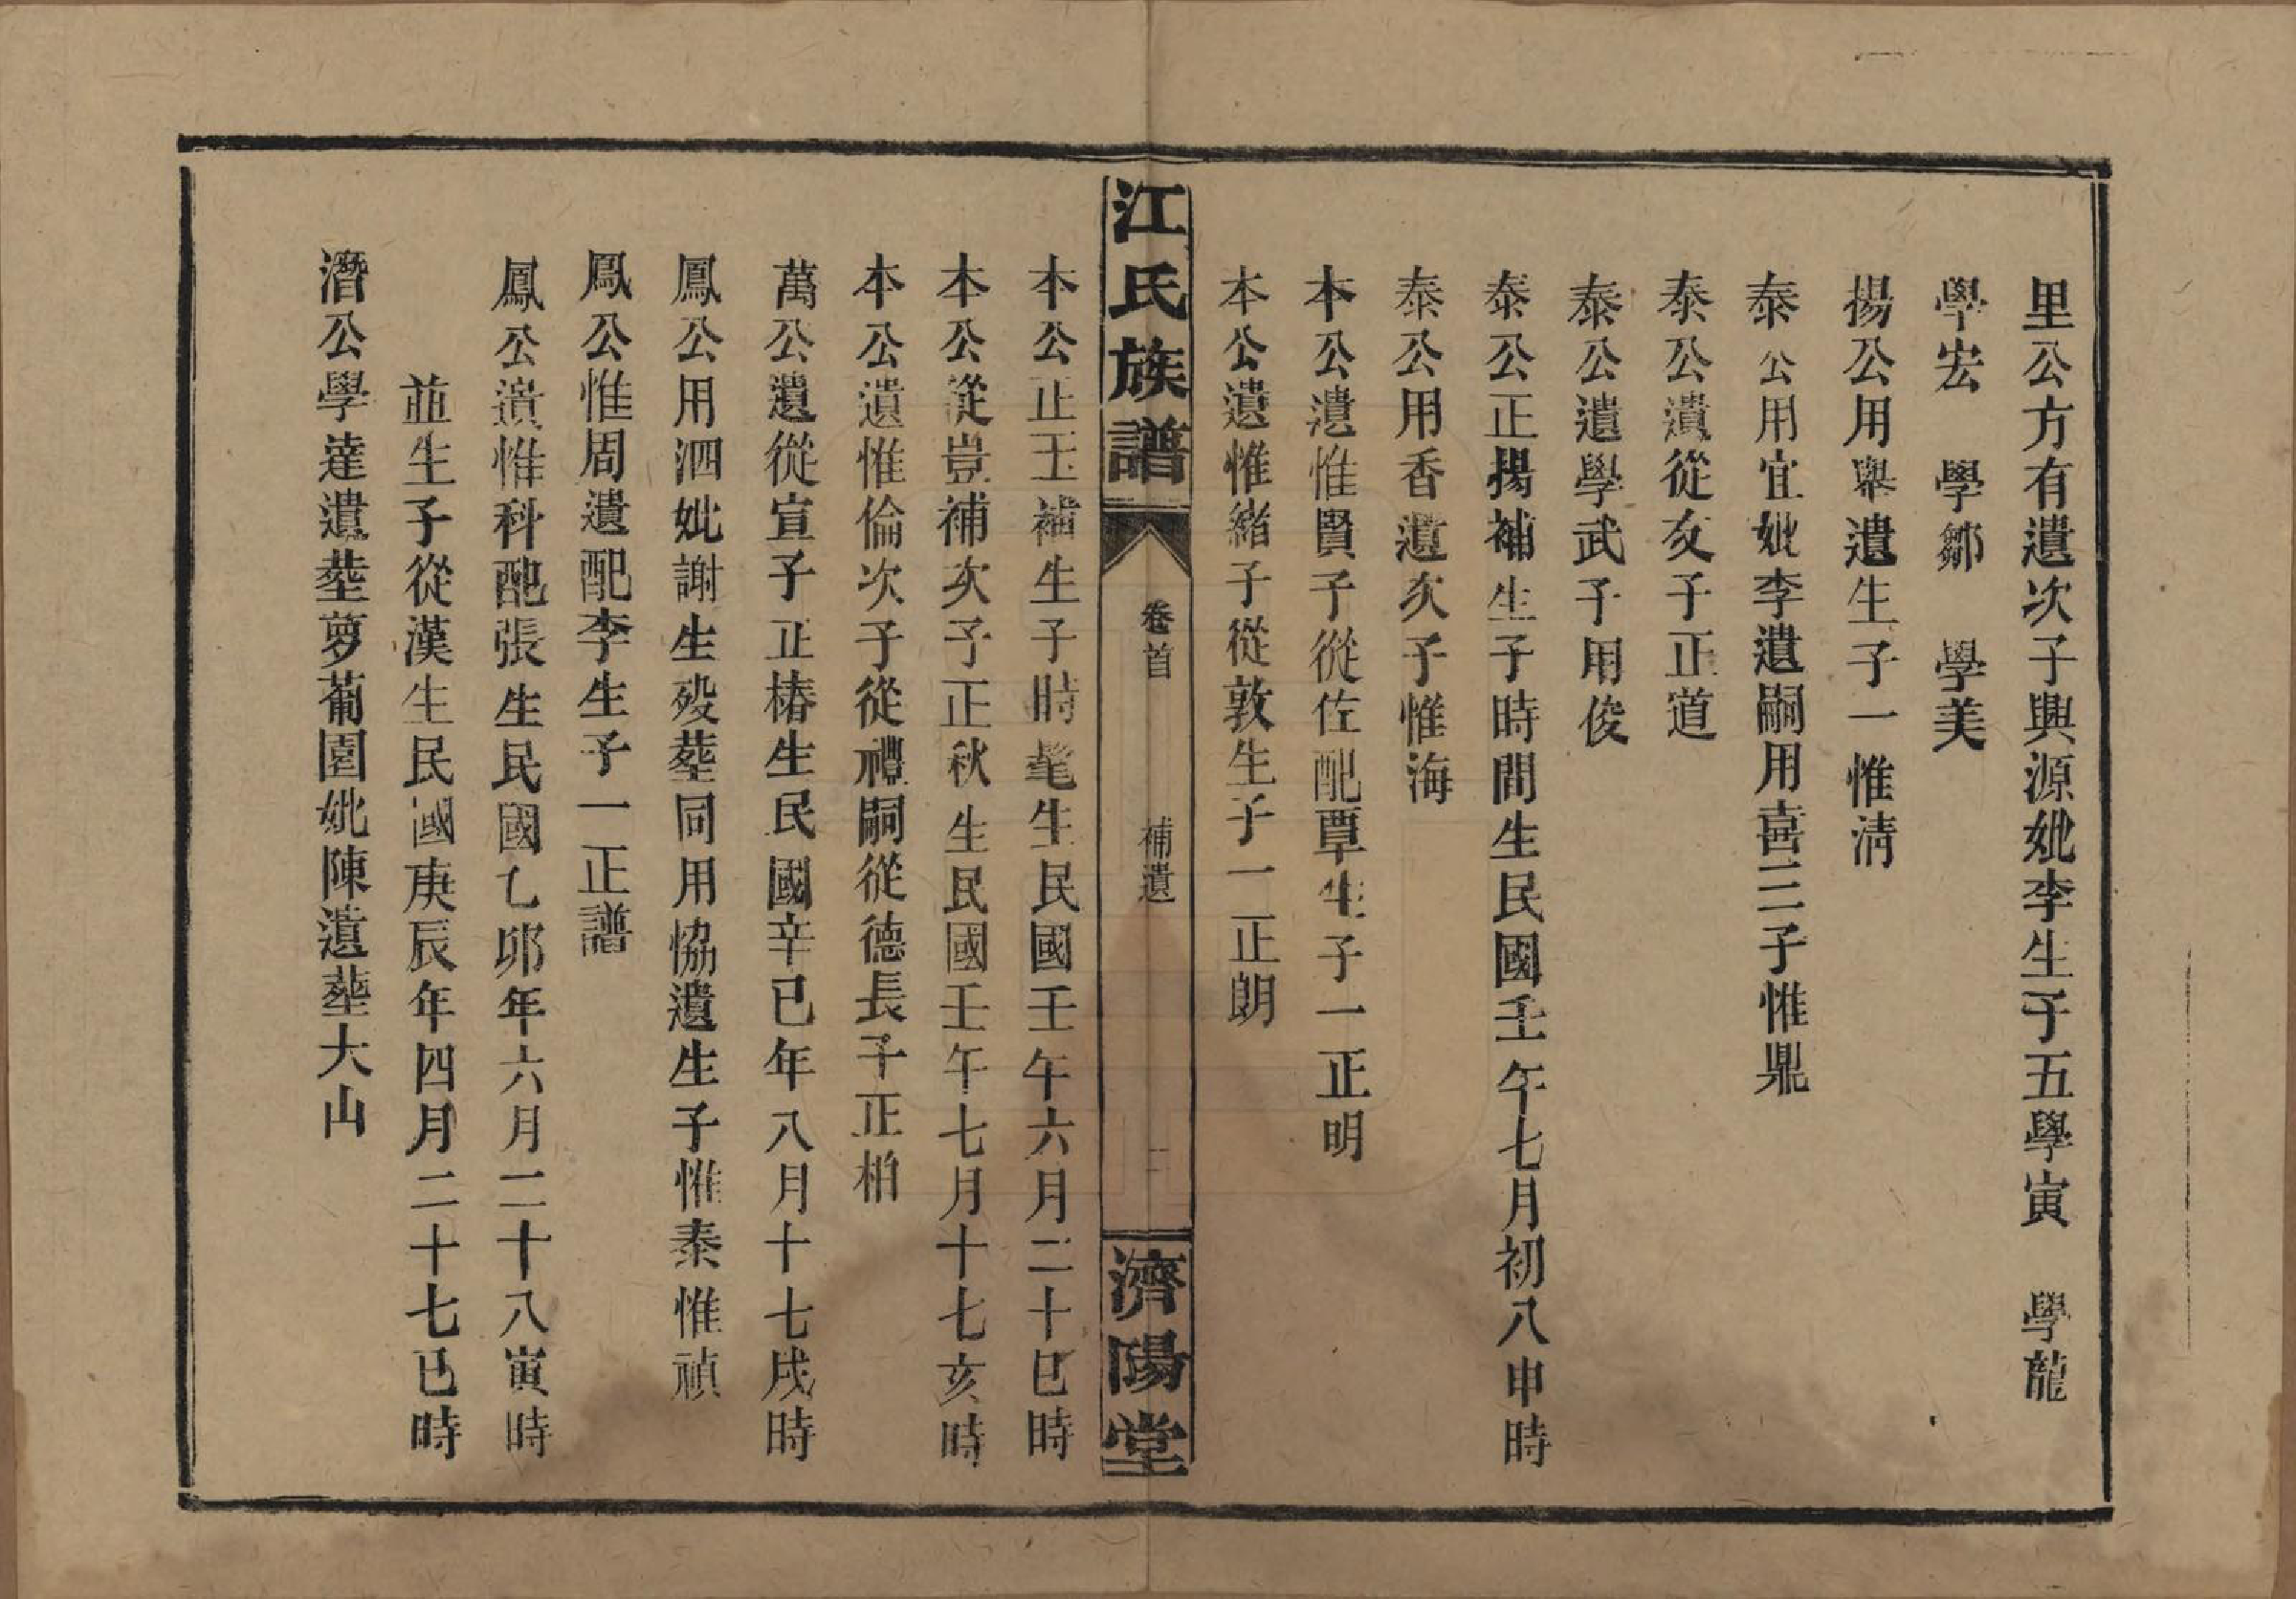 里公方有遺次子興源妣李生子五學寅　學龍
學宏　學鄒　學美
揚公用舉遺生子一惟清
泰公用宜妣李遺嗣用喜三子惟鼎
泰公瀆從友子正道
泰公遺學武子用俊
泰公正揚補生子時間生民國壬午七月初八申時
泰公用香遺次子惟海
本公遺惟賢子從佐配覃生子一正明
本公遺惟緒子從敦生子一正朗
江氏族譜
卷首
補遺
二
濟陽堂
本公正玉補生子時髦生民國壬午六月二十巳時
本公從豈補次子正秋生民國壬午七月十七亥時
本公遺惟倫次子從禮嗣從德長子正柏
萬公遺從宣子正椿生民國辛巳年八月十七戌時
鳳公用泗妣謝生歿塟同用恊遺生子惟秦惟禎
鳳公惟周遺配李生子一正譜
鳳公瀆惟科配張生民國乙卯年六月二十八寅時
並生子從漢生民國庚辰年四月二十七巳時
潛公學達遺塟萝葡園妣陳遺塟大山